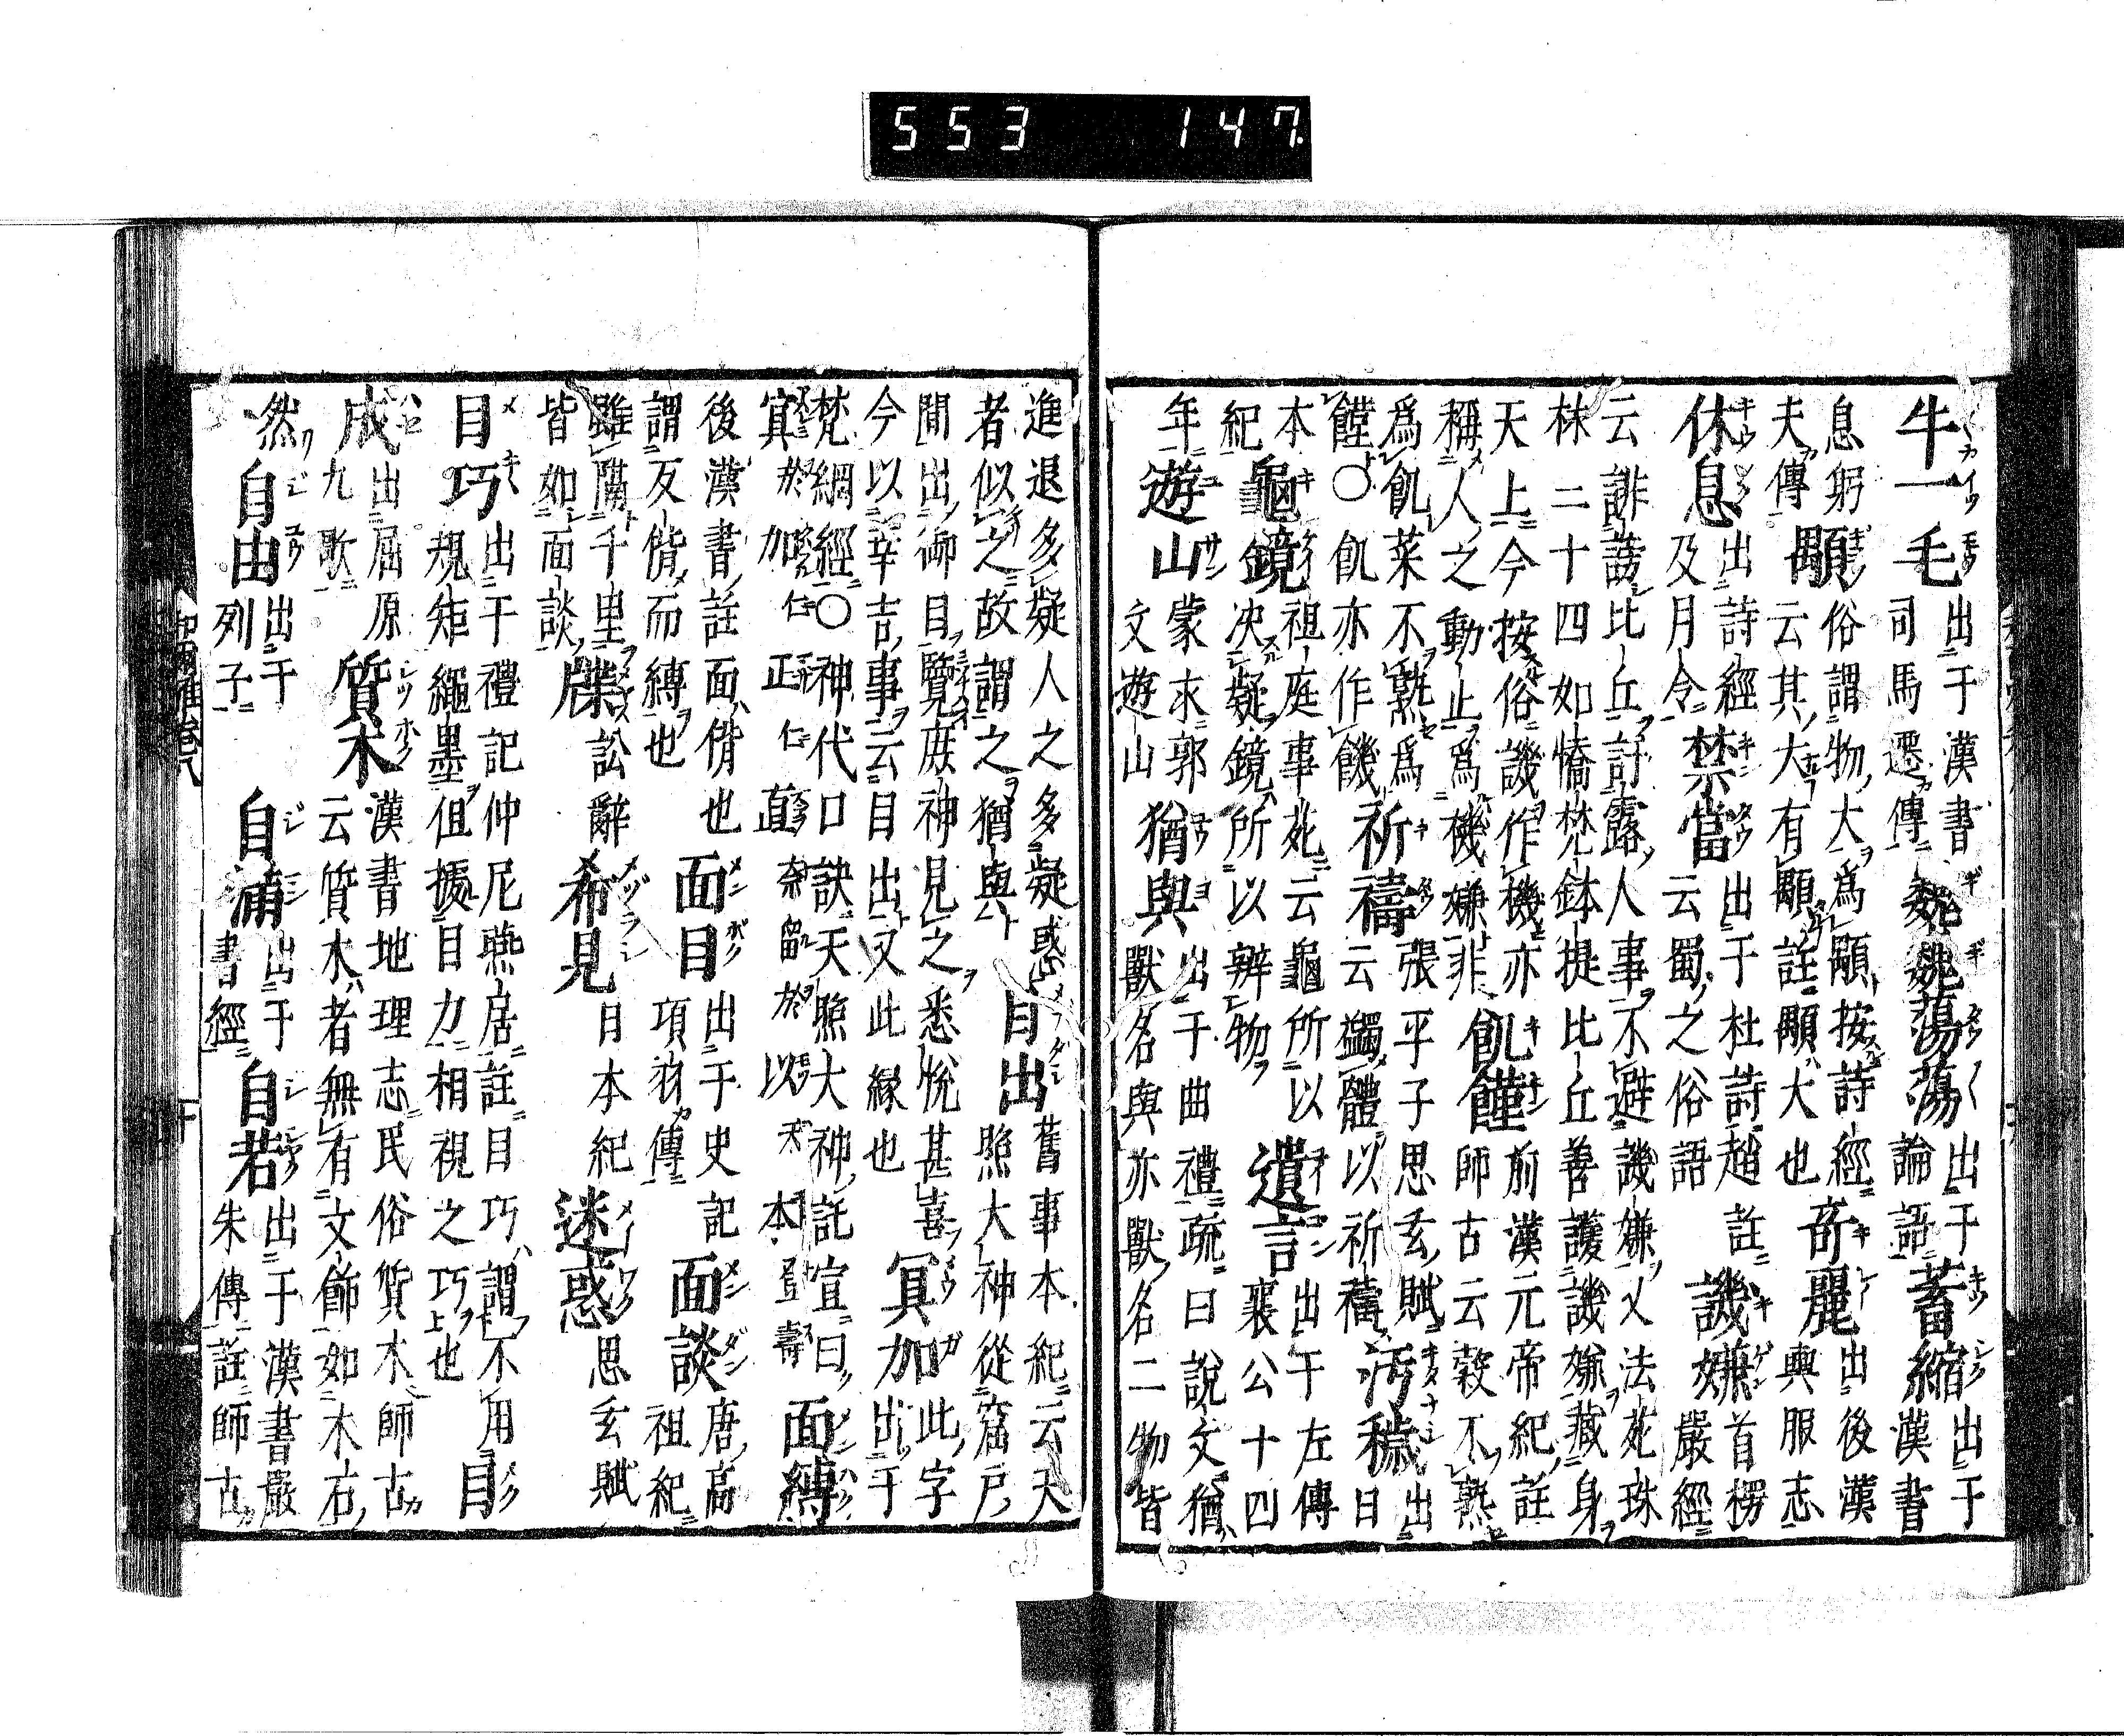 牛一毛 出于漢書
司馬遷傳
魏魏蕩蕩 出于
論語
蓄縮 出于
漢書
息躬
夫傳
顒 俗謂物大為顒按詩經
云其大有顒註顒大也
奇麗 出後漢
輿服志
休息 出詩經
及月令
禁當 出于杜詩趙註
云蜀之俗語
譏嫌 首楞
嚴經
云誹謗比丘訐露人事不避譏嫌又法苑珠
林二十四如憍梵鉢提比丘善護譏嫌藏身
天上今按俗譏作機亦
稱人之動止為機嫌非
飢饉 前漢元帝紀註
師古云穀不熟
為飢菜不熟為
饉○飢亦作饑
祈禱 張平子思玄賦
云蠲體以祈禱
汚穢 出
日
本
紀
龜鏡 祖庭事苑云龜所以
決疑鏡所以辨物
遺言 出于左傳
襄公十四
年
遊山 蒙求郭
文遊山
猶與 出于曲禮疏曰說文猶
獸名與亦獸名二物皆
進退多疑人之多疑惑
者似之故謂之猶與
目出 舊事本紀云天
照大神從窟戶
間出御目覽庶神見之悉悅甚喜
今以幸吉事云目出又此緣也
冥加 此字
出于
梵網經○神代口訣天照大神託宣曰
冥於加仁正仁直奈留於以天本登壽
面縛
後漢書註面偝也
謂反偝而縛也
面目 出于史記
項羽傳
面談 唐高
祖紀
雖隔千里
皆如面談
牒 訟辭
希見 日本紀
迷惑 思玄賦
目巧 出于禮記仲尼燕居註目巧謂不用
規矩繩墨但據目力相視之巧上也
目
成 出屈原
九歌
質木 漢書地理志民俗質木師古
云質木者無有文飾如木石
然
自由 出于
列子
自滿 出于
書經
自若 出于漢書嚴
朱傳註師古
和爾雅卷八